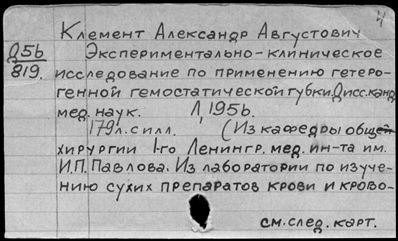 Клемент Александр Августович
Д56
819.
Экспериментально-клиническое
исследование по применению гетеро-
генной гемостатической губки. Дисс. канд.
мед. наук. Л, 1956.
179 л. с илл. (Из кафедры общей
хирургии 1-го Ленингр. мед. ин-та им.
И.П. Павлова. Из лаборатории по изуче-
нию сухих препаратов крови и крово-
см. след. карт.